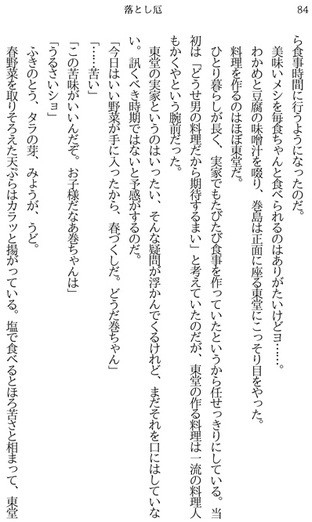 落とし厄
84
ら食事時間に行うようになったのだ。
美味いメシを毎食ちゃんと食べられるのはありがたいけどヨ……。
わかめと豆腐の味噌汁を啜り、巻島は正面に座る東堂にこっそり目をやった。
料理を作るのはほぼ東堂だ。
ひとり暮らしが長く、実家でもたびたび食事を作っていたというから任せっきりにしている。当
初は「どうせ男の料理だから期待するまい」と考えていたのだが、東堂の作る料理は一流の料理人
もかくやという腕前だった。
東堂の実家というのはいったい、そんな疑問が浮かんでくるけれど、まだそれを口にはしていな
い。訊くべき時期ではないと予感がするのだ。
「今日はいい野菜が手に入ったから、春づくしだ。どうだ巻ちゃん」
「……苦い」
「この苦味がいいんだぞ。お子様だなあ巻ちゃんは」
「うるさいショ」
ふきのとう、タラの芽、みょうが、うど。
春野菜を取りそろえた天ぷらはカラッと揚がっている。塩で食べるとほろ苦さと相まって、東堂